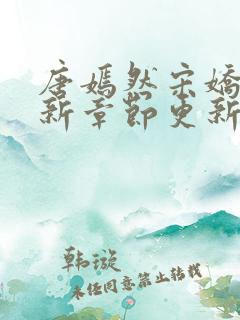 唐嫣然宋嬌
新章節更新
韩漩
未任同意禁止转载